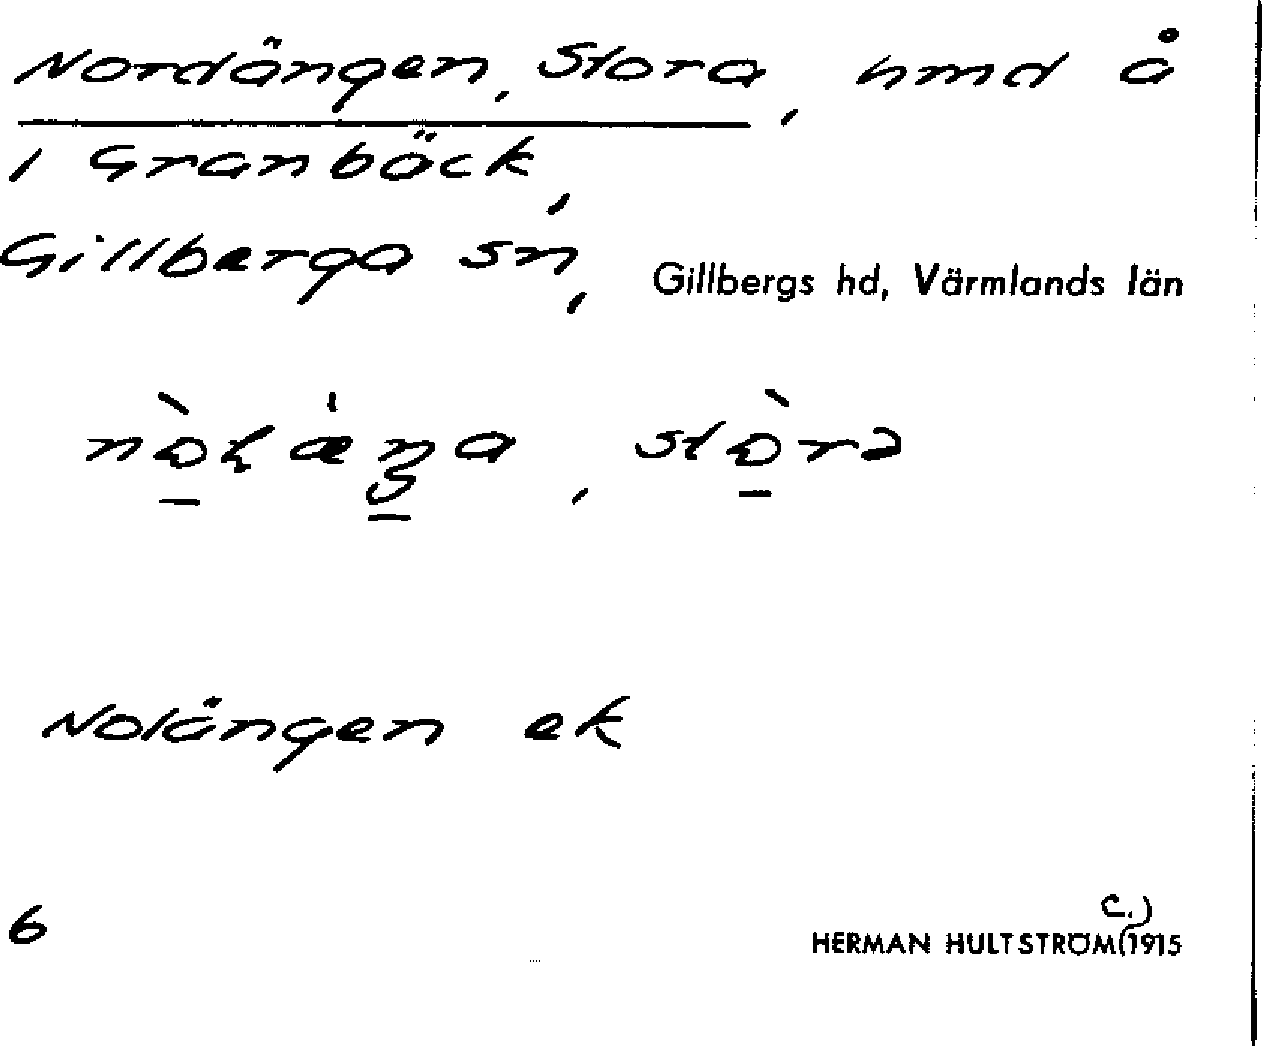 Nordängen, Stora, hmd å
i Granbäck,
Gillberga sn, Gillbergs hd, Värmlands län
stòrə
Nolängen ek
6
HERMAN HULTSTRÖM (c.) 1915